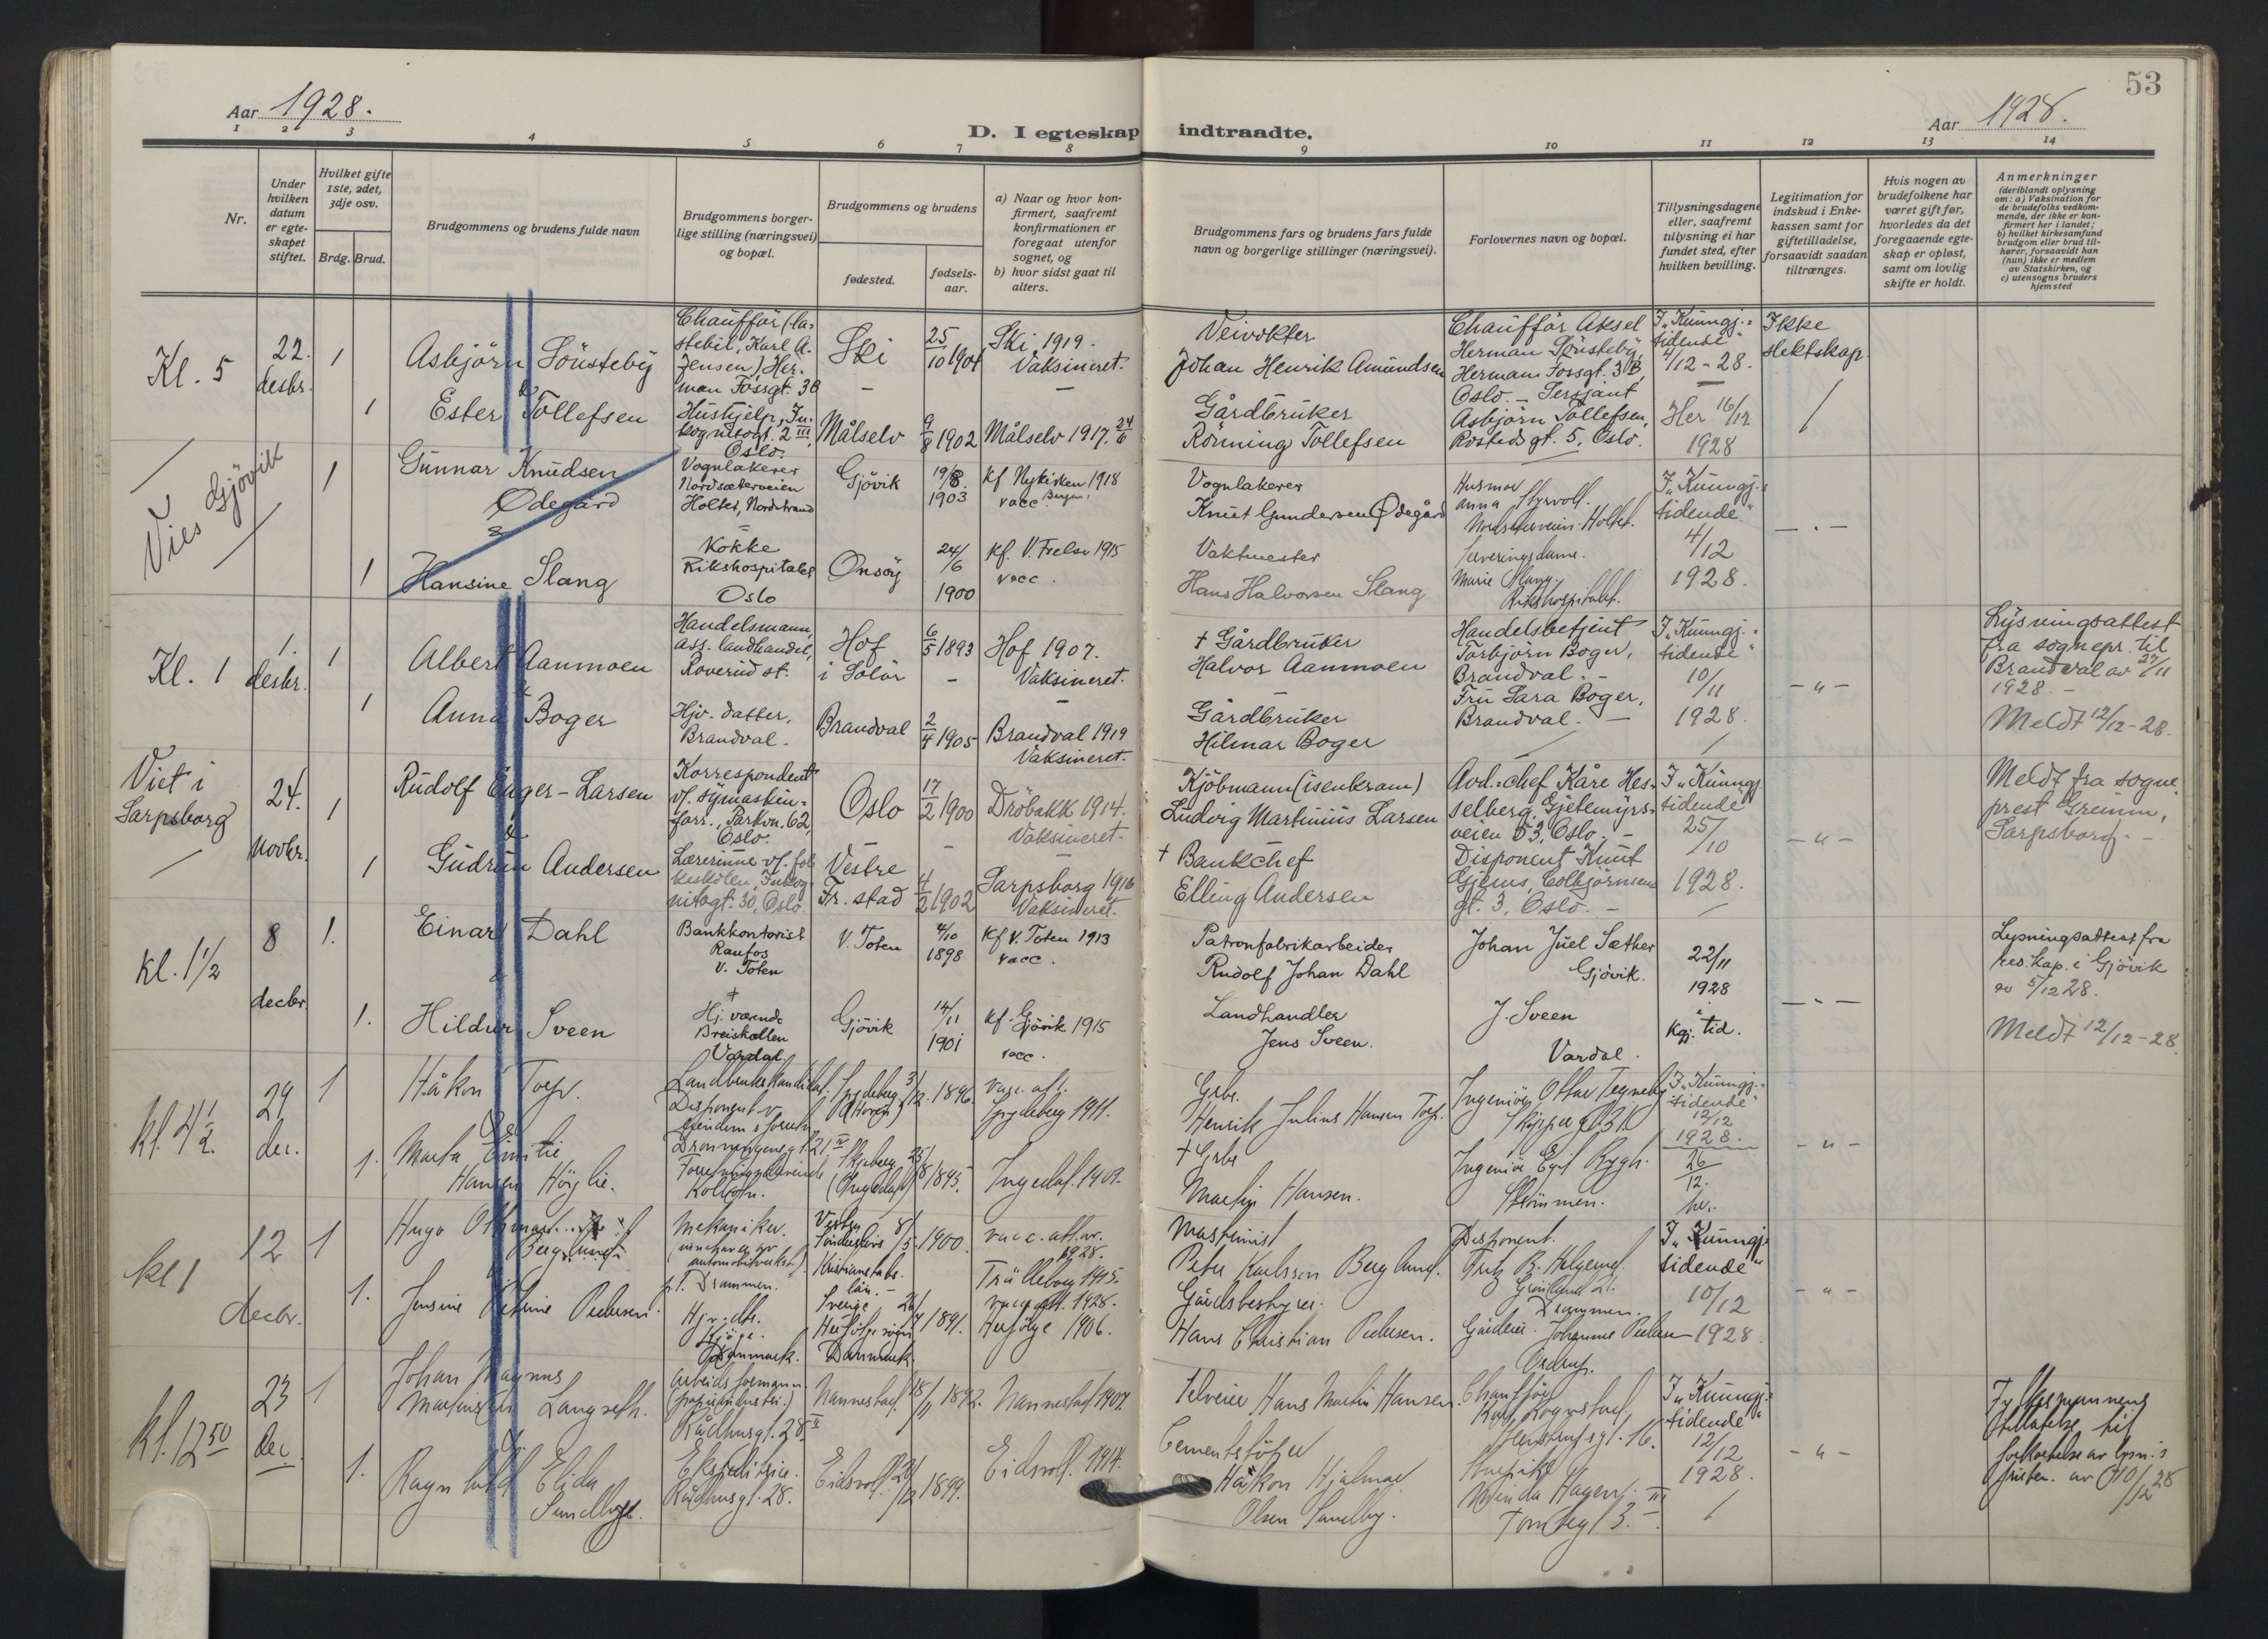 53
Aar 1928.
Aar 1928.
D. I egteskap indtraadte.
1 2 3 4 5 6 7 8 9 10 11 12 13 14
Nr.
Under
hvilken
datum
er egte-
skapet
stiftet.
Hvilket gifte
1ste, 2det,
3dje osv.
Brdg. Brud.
Brudgommens og brudens fulde navn
Brudgommens borger-
lige stilling (næringsvei)
og bopæl.
Brudgommens og brudens
fødested.
fødsels-
aar.
a) Naar og hvor kon-
firmert, saafremt
konfirmationen er
foregaat utenfor
sognet, og
b) hvor sidst gaat til
alters.
Brudgommens fars og brudens fars fulde
navn og borgerlige stillinger (næringsvei).
Forlovernes navn og bopæl.
Tillysningsdagene
eller, saafremt
tillysning ei har
fundet sted, efter
hvilken bevilling.
Legitimation for
indskud i Enke-
kassen samt for
giftetilladelse,
forsaavidt saadan
tiltrænges.
Hvis nogen av
brudefolkene har
været gift før,
hvorledes da det
foregaaende egte-
skap er opløst,
samt om lovlig
skifte er holdt.
Anmerkninger
(deriblandt oplysning
om: a) Vaksination for
de brudefolks vedkom-
mende, der ikke er kon-
firmert her i landet;
b) hvilket kirkesamfund
brudgom eller brud til-
hører, forsaavidt han
(hun) ikke er medlem
av Statskirken, og
c) utensogns bruders
hjemsted
Kl. 5
22.
desbr.
1
Asbjörn Sönsteby
&
Chaufför (la-
stebil, Karl A.
Jensen) Her-
man Fossgt. 3B
Ski
25/10 1904
Ski, 1919.
Vaksineret.
Veivokter
Johan Henrik Amundsen
Chaufför Aksel
Herman Sönsteby,
Herman Fossgt. 3B,
Oslo. - Sersjant
Asbjörn Tollefsen,
Rostedsgt. 5, Oslo.
I „Kunngj.-
tidende"
4/12-28.
Her 16/12
1928
Ikke
slektskap.
1
Ester Tollefsen
Hushjelp, In-
kognitogt. 2 III,
Oslo.
Målselv
9/8 1902
Målselv 1917. 24/6
Gårdbruker
Rönning Tollefsen
Vies Gjövik
1
Gunnar Knudsen
Ødegård
&
Vognlakerer
Nordsæterveien
Holtet, Nordstrand
Gjövik
19/8.
1903
Kf Nykirken 1918
vacc. Bergen.
Vognlakerer
Knut Gundersen Ødegård
Husmor
Anna Styrvoll.
I „Kunngj.-
tidende"
4/12
1928.
1
Hansine Slang
Kokke
Rikshospitalet
Oslo
Onsöy
24/6
1900
Kf. V. Frelser 1915
vacc.
Vaktmester
Hans Halvorsen Slang
Serveringsdame.
Marie Slang.
Rikshospitalet.
Kl. 1
1.
desbr.
1
Albert Aanmoen
&
Handelsmann,
ass. landhandel,
Roverud st.
Hof
i Solör
6/5 1893
Hof 1907.
Vaksineret.
† Gårdbruker
Halvor Aanmoen
Handelsbetjent
Torbjörn Boger,
Brandval. -
Fru Sara Boger,
Brandval. -
I „Kunngj.-
tidende"
10/11
1928.
- " -
Lysningsattest
fra sognepr. til
Brandval av 27/11
1928. -
Meldt 12/12-28.
1
Anna Boger
Hjv. datter,
Brandval.
Brandval
2/4 1905
Brandval 1919
Vaksineret.
Gårdbruker
Hilmar Boger
Viet i
Sarpsborg
24.
novbr.
1
Rudolf Enger-Larsen
&
Korrespondent
v/ symaskin-
forr., Parkvn. 62,
Oslo.
Oslo
17/2 1900
Dröbakk 1914.
Vaksineret.
Kjöbmann (isenkram)
Ludvig Martinius Larsen
Avd.-chef Kåre Hes-
selberg, Gjetemyrs-
veien 53, Oslo. -
Disponent Knut
Gjems, Colbjörnsens
gt. 3, Oslo. -
I „Kunngj.
tidende"
25/10
1928.
- " -
Meldt fra sogne-
prest Grimm,
Sarpsborg. -
1
Gudrun Andersen
Lærerinne v/ fol-
keskolen, Inkog-
nitogt. 30, Oslo.
Vestre
Fr.stad
4/2 1902
Sarpsborg 1916
Vaksineret.
† Bankchef
Elling Andersen
Kl. 1 1/2
8
decbr
1.
Einar Dahl
&
Bankkontorist
Raufos
V. Toten
V. Toten
4/10
1898
Kf V. Toten 1913
vacc.
Patronfabrikarbeider
Rudolf Johan Dahl
Johan Juel Sæther
Gjövik.
22/11
1928
Kgj. tid.
Lysningsattest fra
res. kap. i Gjövik
av 5/12 28.
Meldt 12/12-28.
1.
Hildur Sveen
Hj. værende
Breiskallen
Vardal.
Gjövik
14/11
1901
Kf. Gjövik 1915
vacc.
Landhandler
Jens Sveen.
J. Sveen
Vardal.
Kl. 4 1/2
29
dec.
1
Håkon Torp.
&
Landbrukskandidat.
Disponent v
eiendomsforretn.
Dronningensgt. 21 IV
Spydeberg
3/12. 1896.
vacc. att.
Spydeberg 1911.
Grbr.
Henrik Julius Hansen Torp.
Ingeniör Ottar Tegneby
Skippergt. 31.
I „Kunngj.-
tidende"
12/12
1928.
26/12.
- " -
1.
Marta Emilie
Hansen Höglie.
Kolbotn.
Skjeberg
(Ingedal)
25/8 1895.
Ingedal. 1909.
† Grbr
Martin Hansen.
Ingeniör Egil Rygh.
Strömmen.
kl 1
12
decbr.
1
Hugo Othmar
Berglund
Mekaniker.
p.t. Drammen.
Kristianstads
län. -
Sverige
8/5 1900.
vacc. att.
1928.
Trälleborg 1915.
Maskinist
Peter Karlsson Berglund.
Disponent.
Grönland 21.
Drammen.
I „Kunngj.
tidende"
10/12
1928.
- " -
1.
Jensine Petrine Pedersen.
Hjv. dtr.
Kjöge.
Danmark.
Herfölge sogn
Danmark.
26/4 1891.
vacc. att. 1928.
Herfölge 1906.
Gårdsbestyrer.
Hans Christian Pedersen.
Johannes Pedersen
Kl. 12 50
23
Dec.
1
Johan Magnus
Martinsen Langseth.
&
Arbeidsformann.
Rådhusgt. 28 II
Nannestad.
18/11 1892.
Nannestad 1907.
Selveier Hans Martin Hansen.
Chaufför
Karl Rognstad,
I „Kunngj.-
tidende"
12/12
1928.
- " -
Fylkesmannens
tillatelse til
forkortelse av lysn.s
fristen. av 10/12 28
1.
Ragnhild Elida
Sundby.
Ekspeditrice.
Rådhusgt. 28.
Eidsvoll.
1899.
Eidsvoll. 1914.
Cementstöper
Håkon Hjalmar
Olsen Sundby.
Hagen.
Tomtegt 3.